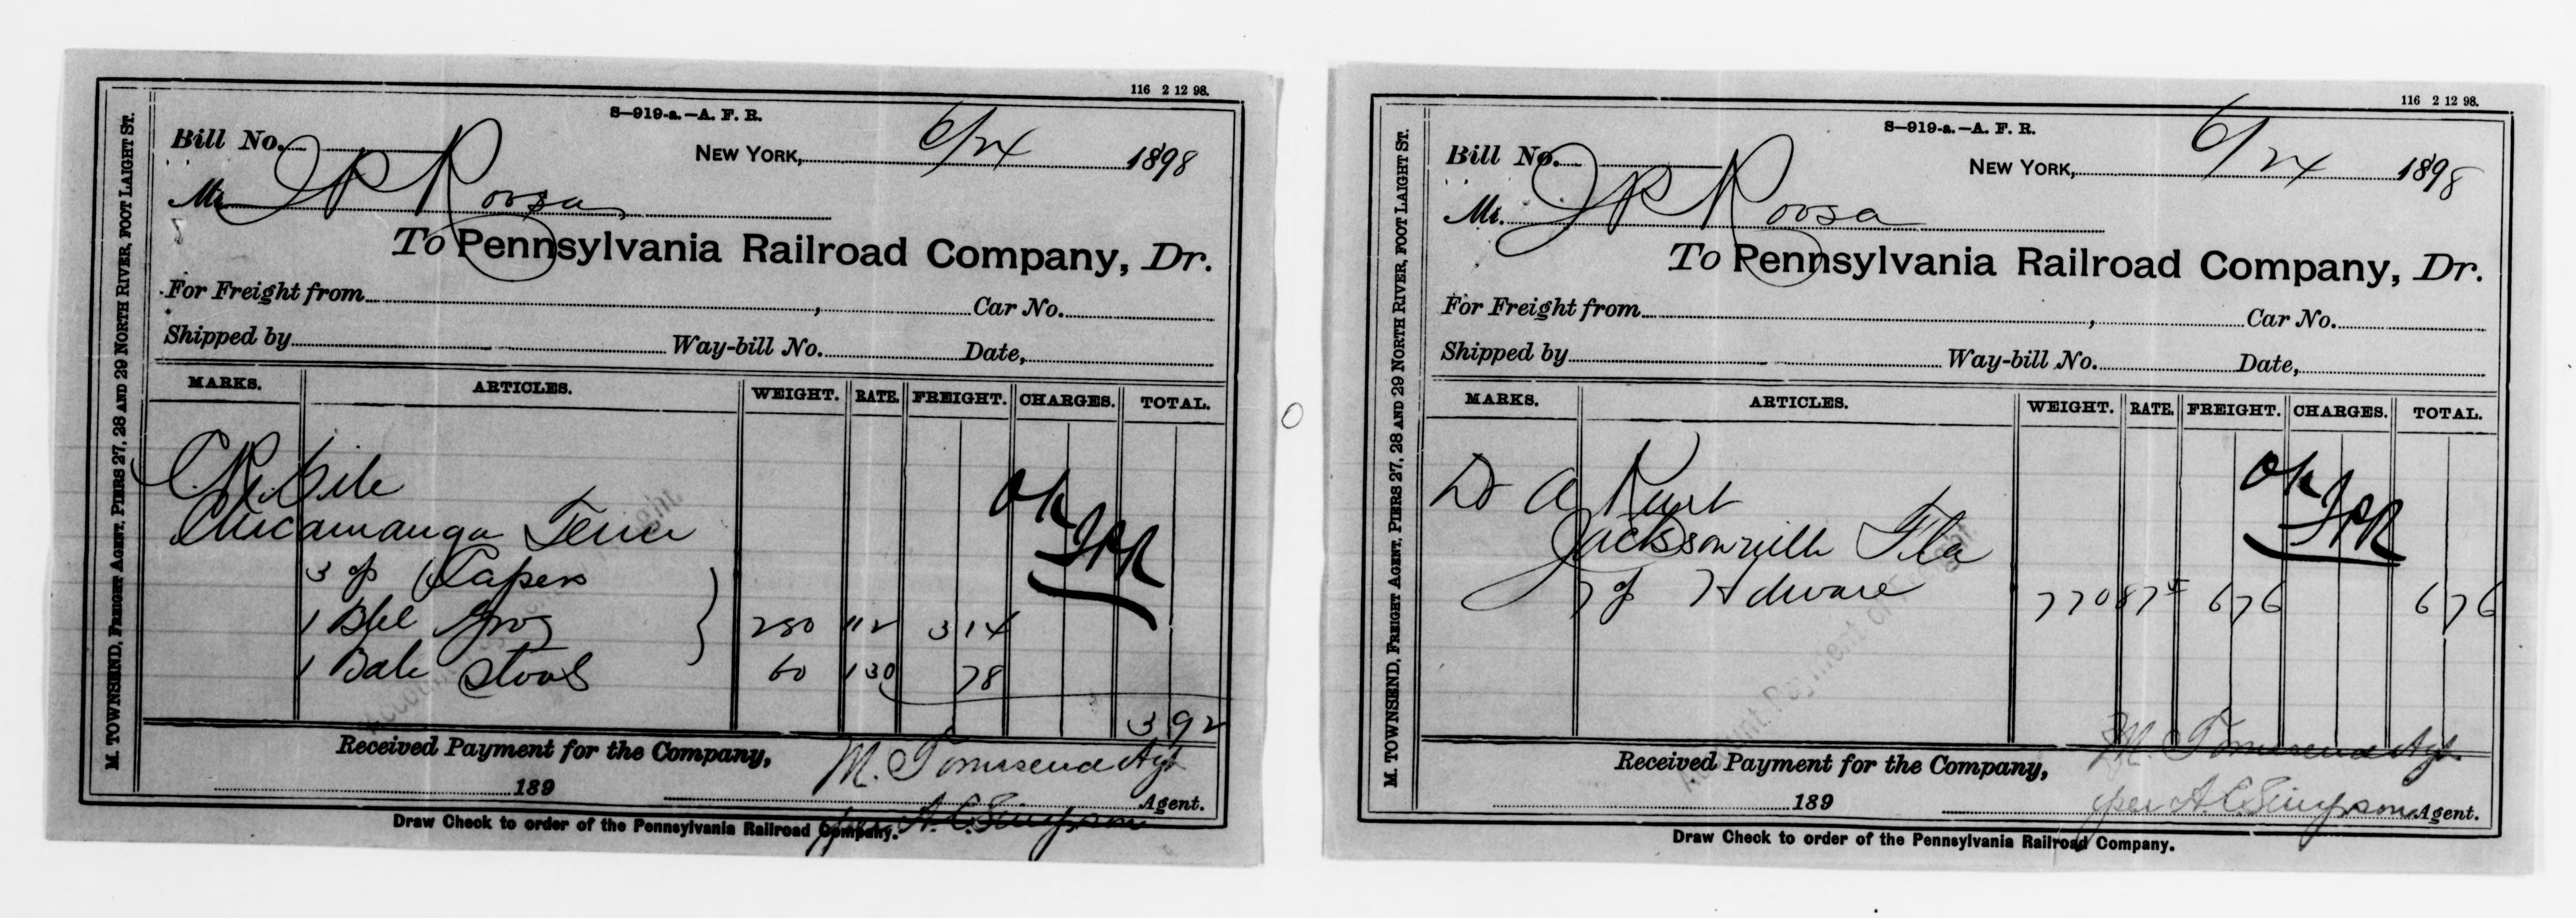 116 2 12 98.
S—919-a.—A. F. R.
Bill No.
NEW YORK, 6/24 1898
Mr. J P Roosa
To Pennsylvania Railroad Company, Dr.
For Freight from , Car No.
Shipped by Way-bill No. Date,
MARKS. ARTICLES. WEIGHT. RATE. FREIGHT. CHARGES. TOTAL.
Chicamauga Tenn
OK
JPR
3 Papers
1 Bbl 280 112 3 14
1 Bale Stools 60 130 78
3 92
Received Payment for the Company,
M. Townsend Agt
189 Agent.
per A. C. Simpson
Draw Check to order of the Pennsylvania Railroad Company.
M. TOWNSEND, FREIGHT AGENT, PIERS 27, 28 AND 29 NORTH RIVER, FOOT LAIGHT ST.
116 2 12 98.
S—919-a.—A. F. R.
Bill No.
NEW YORK, 6/24 1898
Mr. J P Roosa
To Pennsylvania Railroad Company, Dr.
For Freight from , Car No.
Shipped by Way-bill No. Date,
MARKS. ARTICLES. WEIGHT. RATE. FREIGHT. CHARGES. TOTAL.
Dr A Kent
OK
JPR
Jacksonville Fla
7 Hdware 770 875 6 76 6 76
Received Payment for the Company,
M. Townsend Agt
189 Agent.
per A. C. Simpson
Draw Check to order of the Pennsylvania Railroad Company.
M. TOWNSEND, FREIGHT AGENT, PIERS 27, 28 AND 29 NORTH RIVER, FOOT LAIGHT ST.